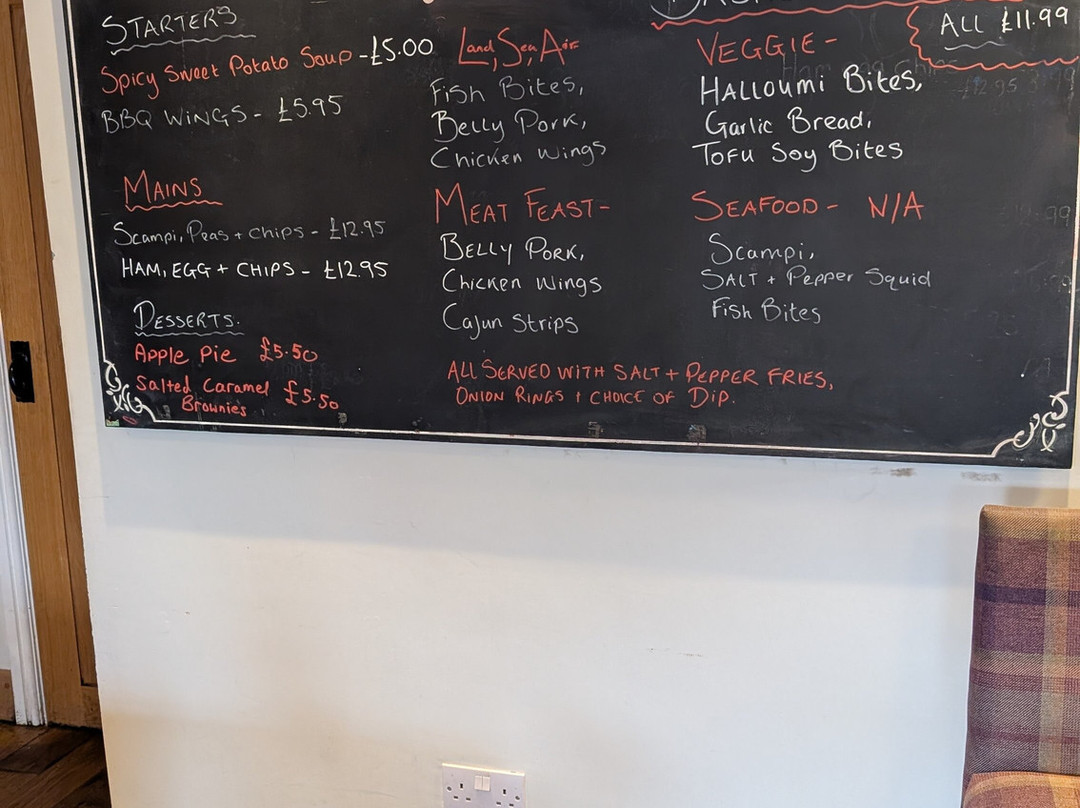 STARTERS
Spicy Sweet Potato Soup - £5.00
BBQ WINGS - £5.95
MAINS
Scampi, Peas + chips - £12.95
HAM, EGG + CHIPS - £12.95
DESSERTS.
Apple Pie £5.50
Salted Caramel £5.50
Brownies
Land, Sea, Air
Fish Bites,
Belly Pork,
Chicken Wings
MEAT FEAST-
BELLY PORK,
Chicken Wings
Cajun Strips
ALL £11.99
VEGGIE -
HALLOUMI Bites,
Garlic Bread,
TOFU SOY BITES
SEAFOOD - N/A
Scampi,
SALT + Pepper Squid
Fish Bites
ALL SERVED WITH SALT + PEPPER FRIES,
ONION RINGS + CHOICE OF DIP.